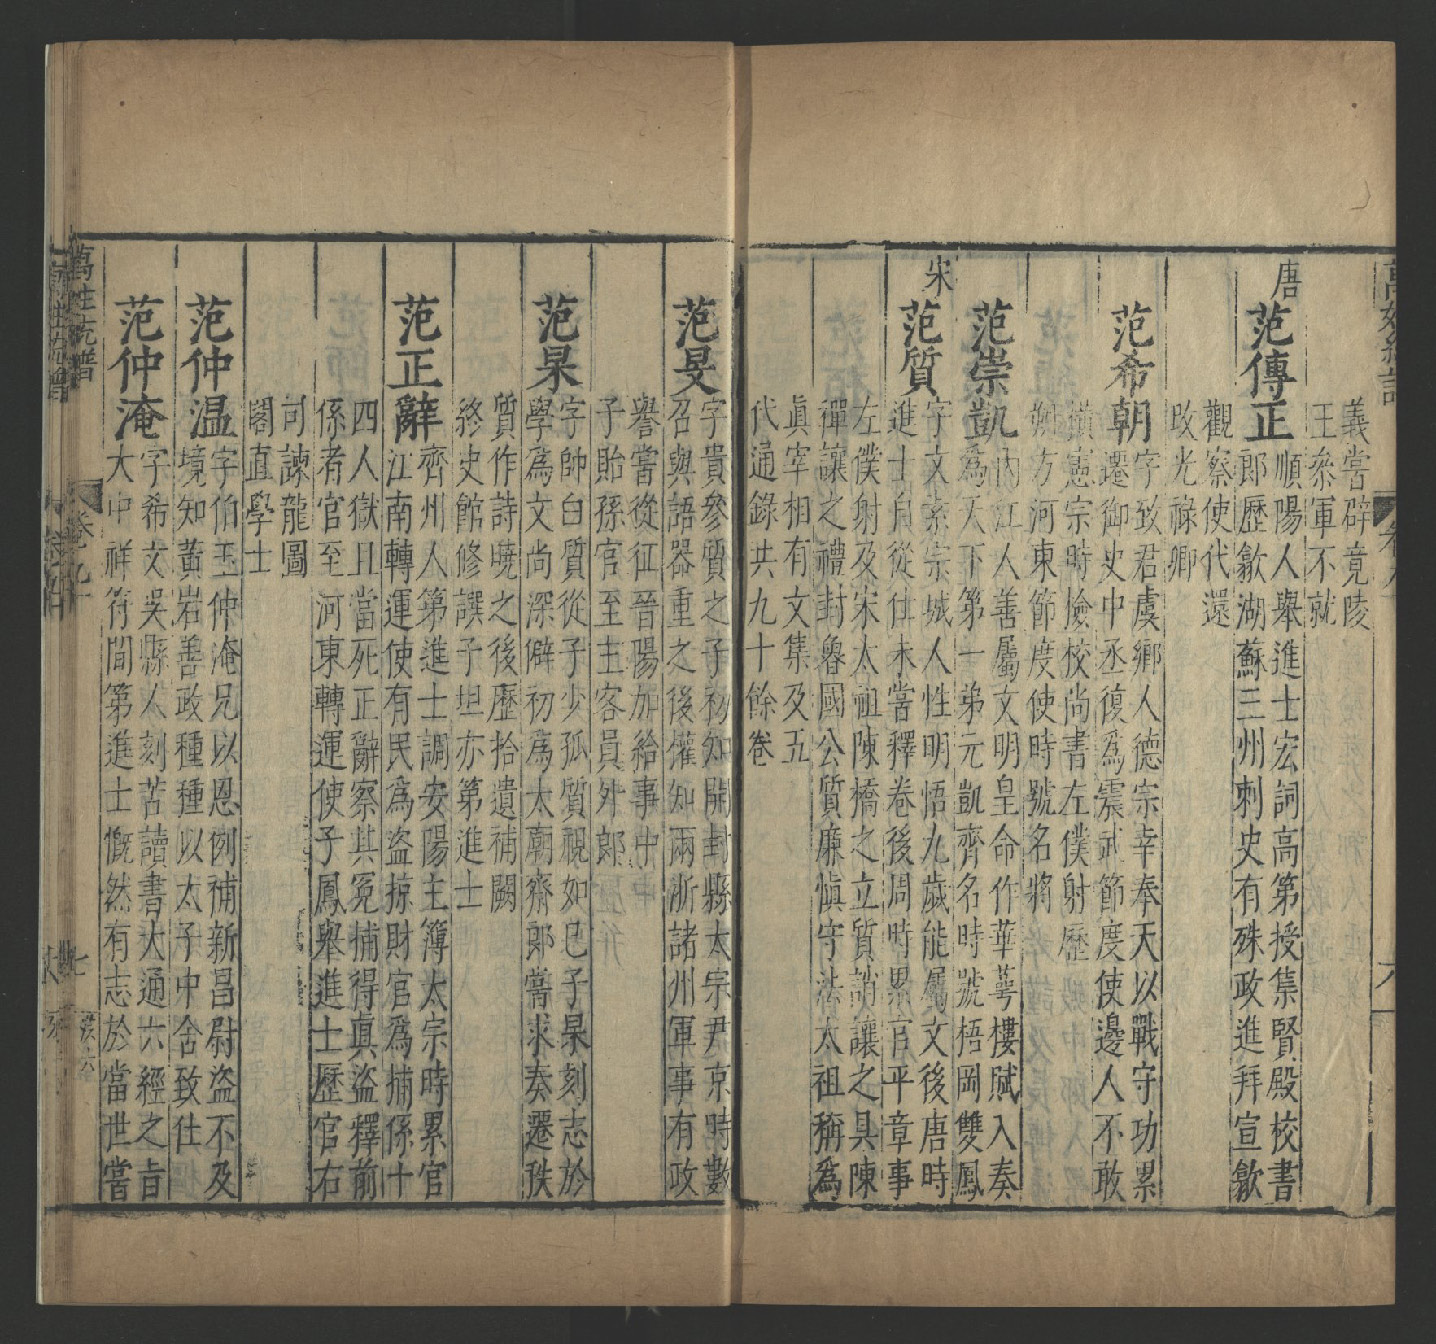 義嘗辟竟陵
王參軍不就
唐
范傳正
順陽人舉進士宏詞高第授集賢殿校書
郎歷歙湖蘇三州刺史有殊政進拜宣歙
觀察使代還
改光祿卿
范希朝
字致君虞鄉人德宗幸奉天以戰守功累
遷御史中丞復爲震武節度使邊人不敢
橫憲宗時檢校尚書左僕射歷
朔方河東節度使時號名將
范崇凱
內江人善屬文明皇命作華萼樓賦入奏
爲天下第一弟元凱齊名時號梧岡雙鳳
宋
范質
字文素宗城人性明悟九歲能屬文後唐時
進士自從仕未嘗釋卷後周時累官平章事
左僕射及宋太祖陳橋之立質誚讓之具陳
禪讓之禮封魯國公質廉愼守法太祖稱爲
眞宰相有文集及五
代通錄共九十餘卷
范旻
字貴參質之子初知開封縣太宗尹京時數
召與語器重之後懽知兩浙諸州軍事有政
譽嘗從征晉陽加給事中
子貽孫官至主客員外郎
范杲
字帥白質從子少孤質視如已子杲刻志於
學爲文尚深僻初爲太廟齋郎嘗求奏遷秩
質作詩曉之後歷拾遺補闕
終史館修譔子坦亦第進士
范正辭
齊州人第進士調安陽主簿太宗時累官
江南轉運使有民爲盜掠財官爲捕係十
四人獄且當死正辭察其冤捕得眞盜釋前
係者官至河東轉運使子鳳舉進士歷官右
司諫龍圖
閣直學士
范仲温
字伯玉仲淹兄以恩例補新昌尉盜不及
境知黃岩善政種種以太子中舍致仕
范仲淹
字希文吳縣人刻苦讀書大通六經之旨
大中祥符間第進士慨然有志於當世嘗
萬姓統譜
卷九十
七